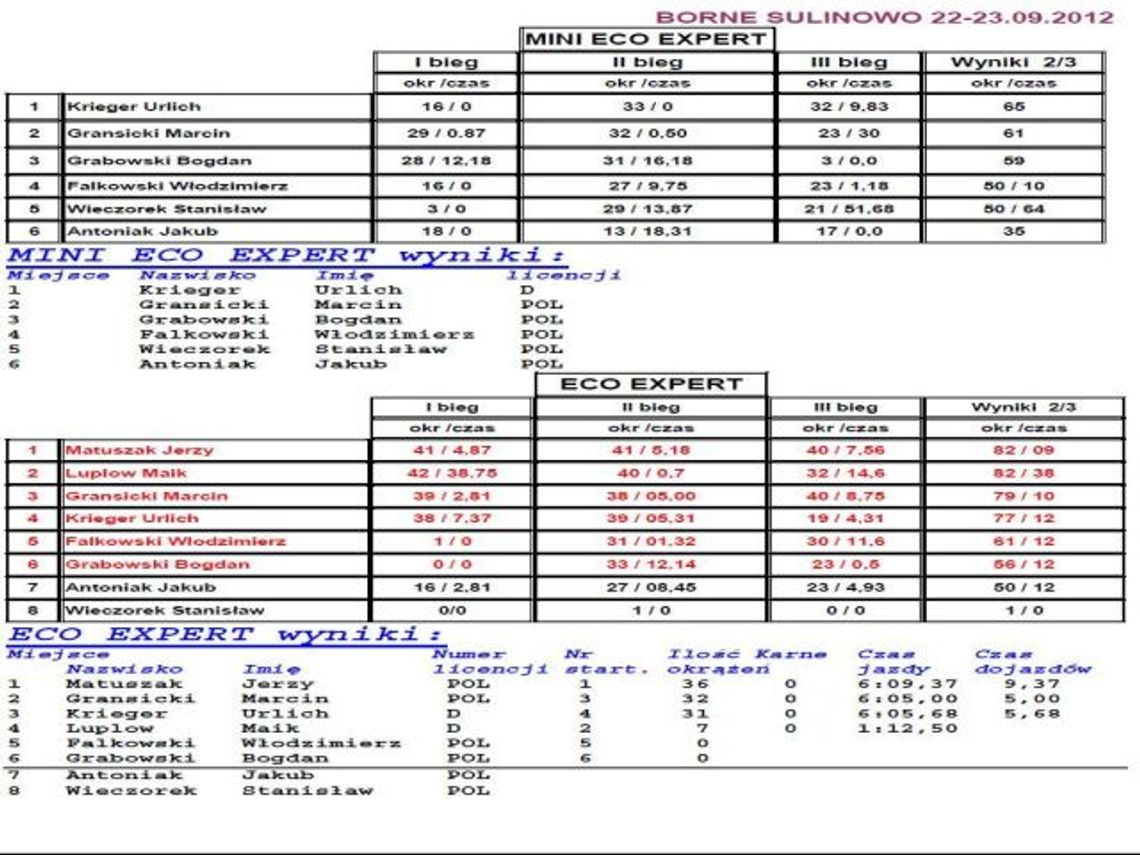 BORNE SULINOWO 22-23.09.2012
MINI ECO EXPERT
I bieg II bieg III bieg Wyniki 2/3
okr /czas okr /czas okr /czas okr /czas
1 Krieger Urlich 16 / 0 33 / 0 32 / 9,83 65
2 Gransicki Marcin 29 / 0.87 32 / 0,50 23 / 30 61
3 Grabowski Bogdan 28 / 12,18 31 / 16,18 3 / 0,0 59
4 Falkowski Włodzimierz 16 / 0 27 / 9,75 23 / 1,18 50 / 10
5 Wieczorek Stanisław 3 / 0 29 / 13,87 21 / 51,68 50 / 64
6 Antoniak Jakub 18 / 0 13 / 18,31 17 / 0,0 35
MINI ECO EXPERT wyniki:
Miejsce Nazwisko Imię licencji
1 Krieger Urlich D
2 Gransicki Marcin POL
3 Grabowski Bogdan POL
4 Falkowski Włodzimierz POL
5 Wieczorek Stanisław POL
6 Antoniak Jakub POL
ECO EXPERT
I bieg II bieg III bieg Wyniki 2/3
okr /czas okr /czas okr /czas okr /czas
1 Matuszak Jerzy 41 / 4,87 41 / 5,18 40 / 7,56 82 / 09
2 Luplow Maik 42 / 38,75 40 / 0,7 32 / 14,6 82 / 38
3 Gransicki Marcin 39 / 2,81 38 / 05,00 40 / 8,75 79 / 10
4 Krieger Urlich 38 / 7,37 39 / 05,31 19 / 4,31 77 / 12
5 Falkowski Wlodzimierz 1 / 0 31 / 01,32 30 / 11,6 61 / 12
6 Grabowski Bogdan 0 / 0 33 / 12,14 23 / 0,5 56 / 12
7 Antoniak Jakub 16 / 2,81 27 / 08,45 23 / 4,93 50 / 12
8 Wieczorek Stanisław 0/0 1 / 0 0 / 0 1 / 0
ECO EXPERT wyniki:
Miejsce Numer Nr Ilość Karne Czas Czas
Nazwisko Imię licencji start. okrążeń jazdy dojazdów
1 Matuszak Jerzy POL 1 36 0 6:09,37 9,37
2 Gransicki Marcin POL 3 32 0 6:05,00 5,00
3 Krieger Urlich D 4 31 0 6:05,68 5,68
4 Luplow Maik D 2 7 0 1:12,50
5 Falkowski Włodzimierz POL 5 0
6 Grabowski Bogdan POL 6 0
7 Antoniak Jakub POL
8 Wieczorek Stanisław POL